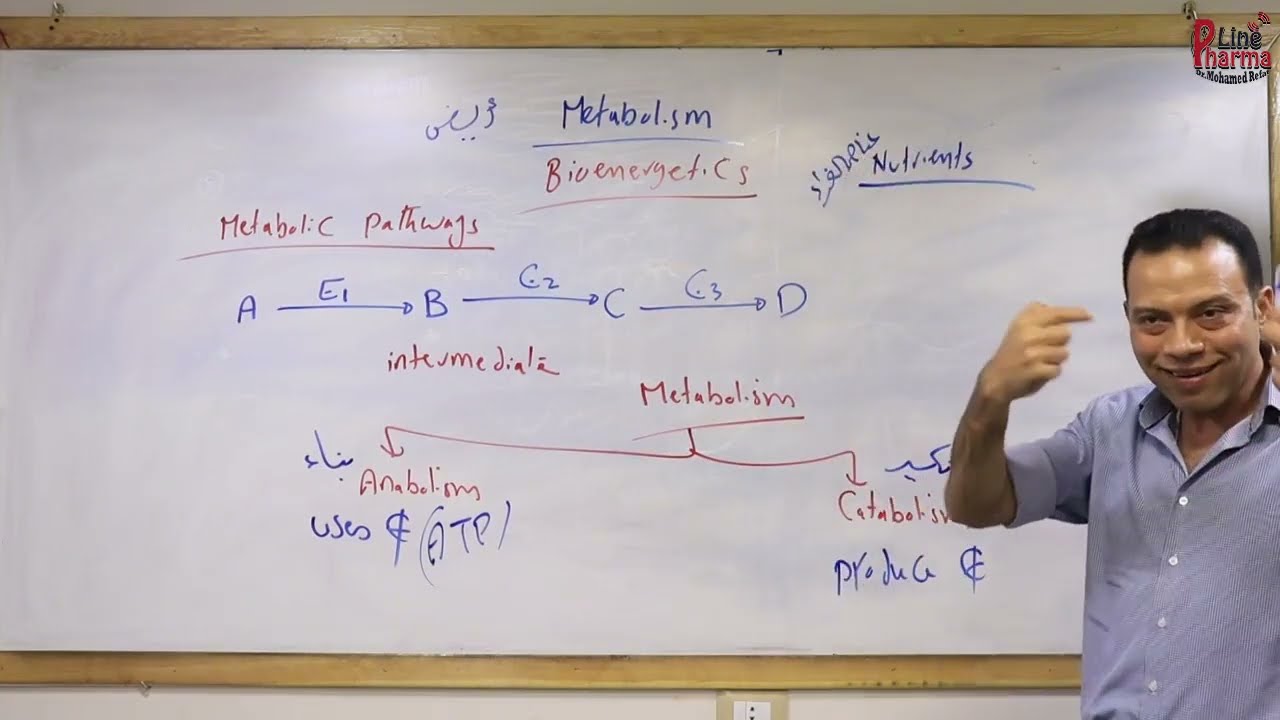 Line Pharma
Dr.Mohamed Refa
أيض Metabolism
Bioenergetics
عناصر الغذاء Nutrients
Metabolic pathways
A E1 B E2 C E3 D
intermediate
Metabolism
بناء
Anabolism
Catabolism
uses E (ATP)
produce E